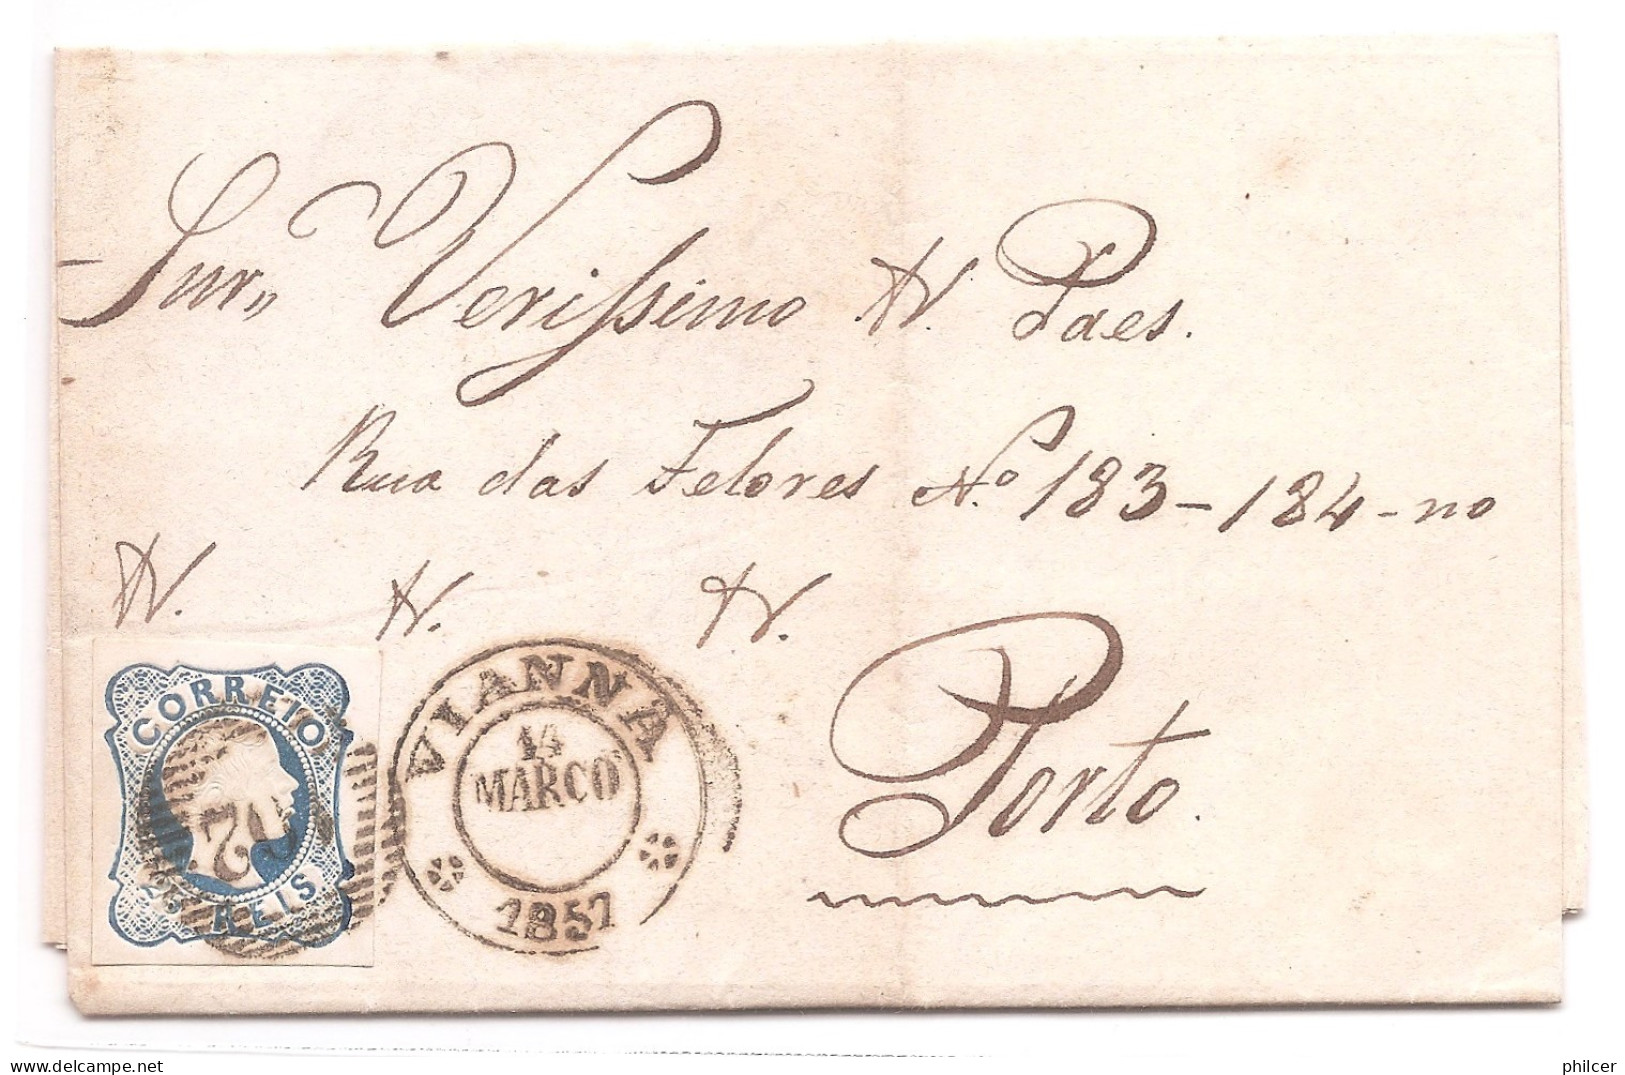 Snr,, Verissimo N. Paes.
Rua das Felores Nº 183-184-no
N. N. N.
Porto.
CORREIO
25 REIS
VIANNA
14
MARCO
1857
philcer